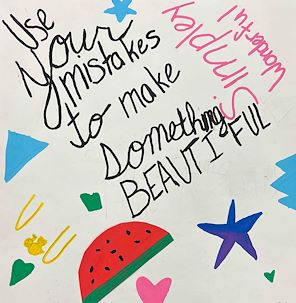 Use
Your
mistakes
to make
Something
BEAUTIFUL
Simpley
wonderful